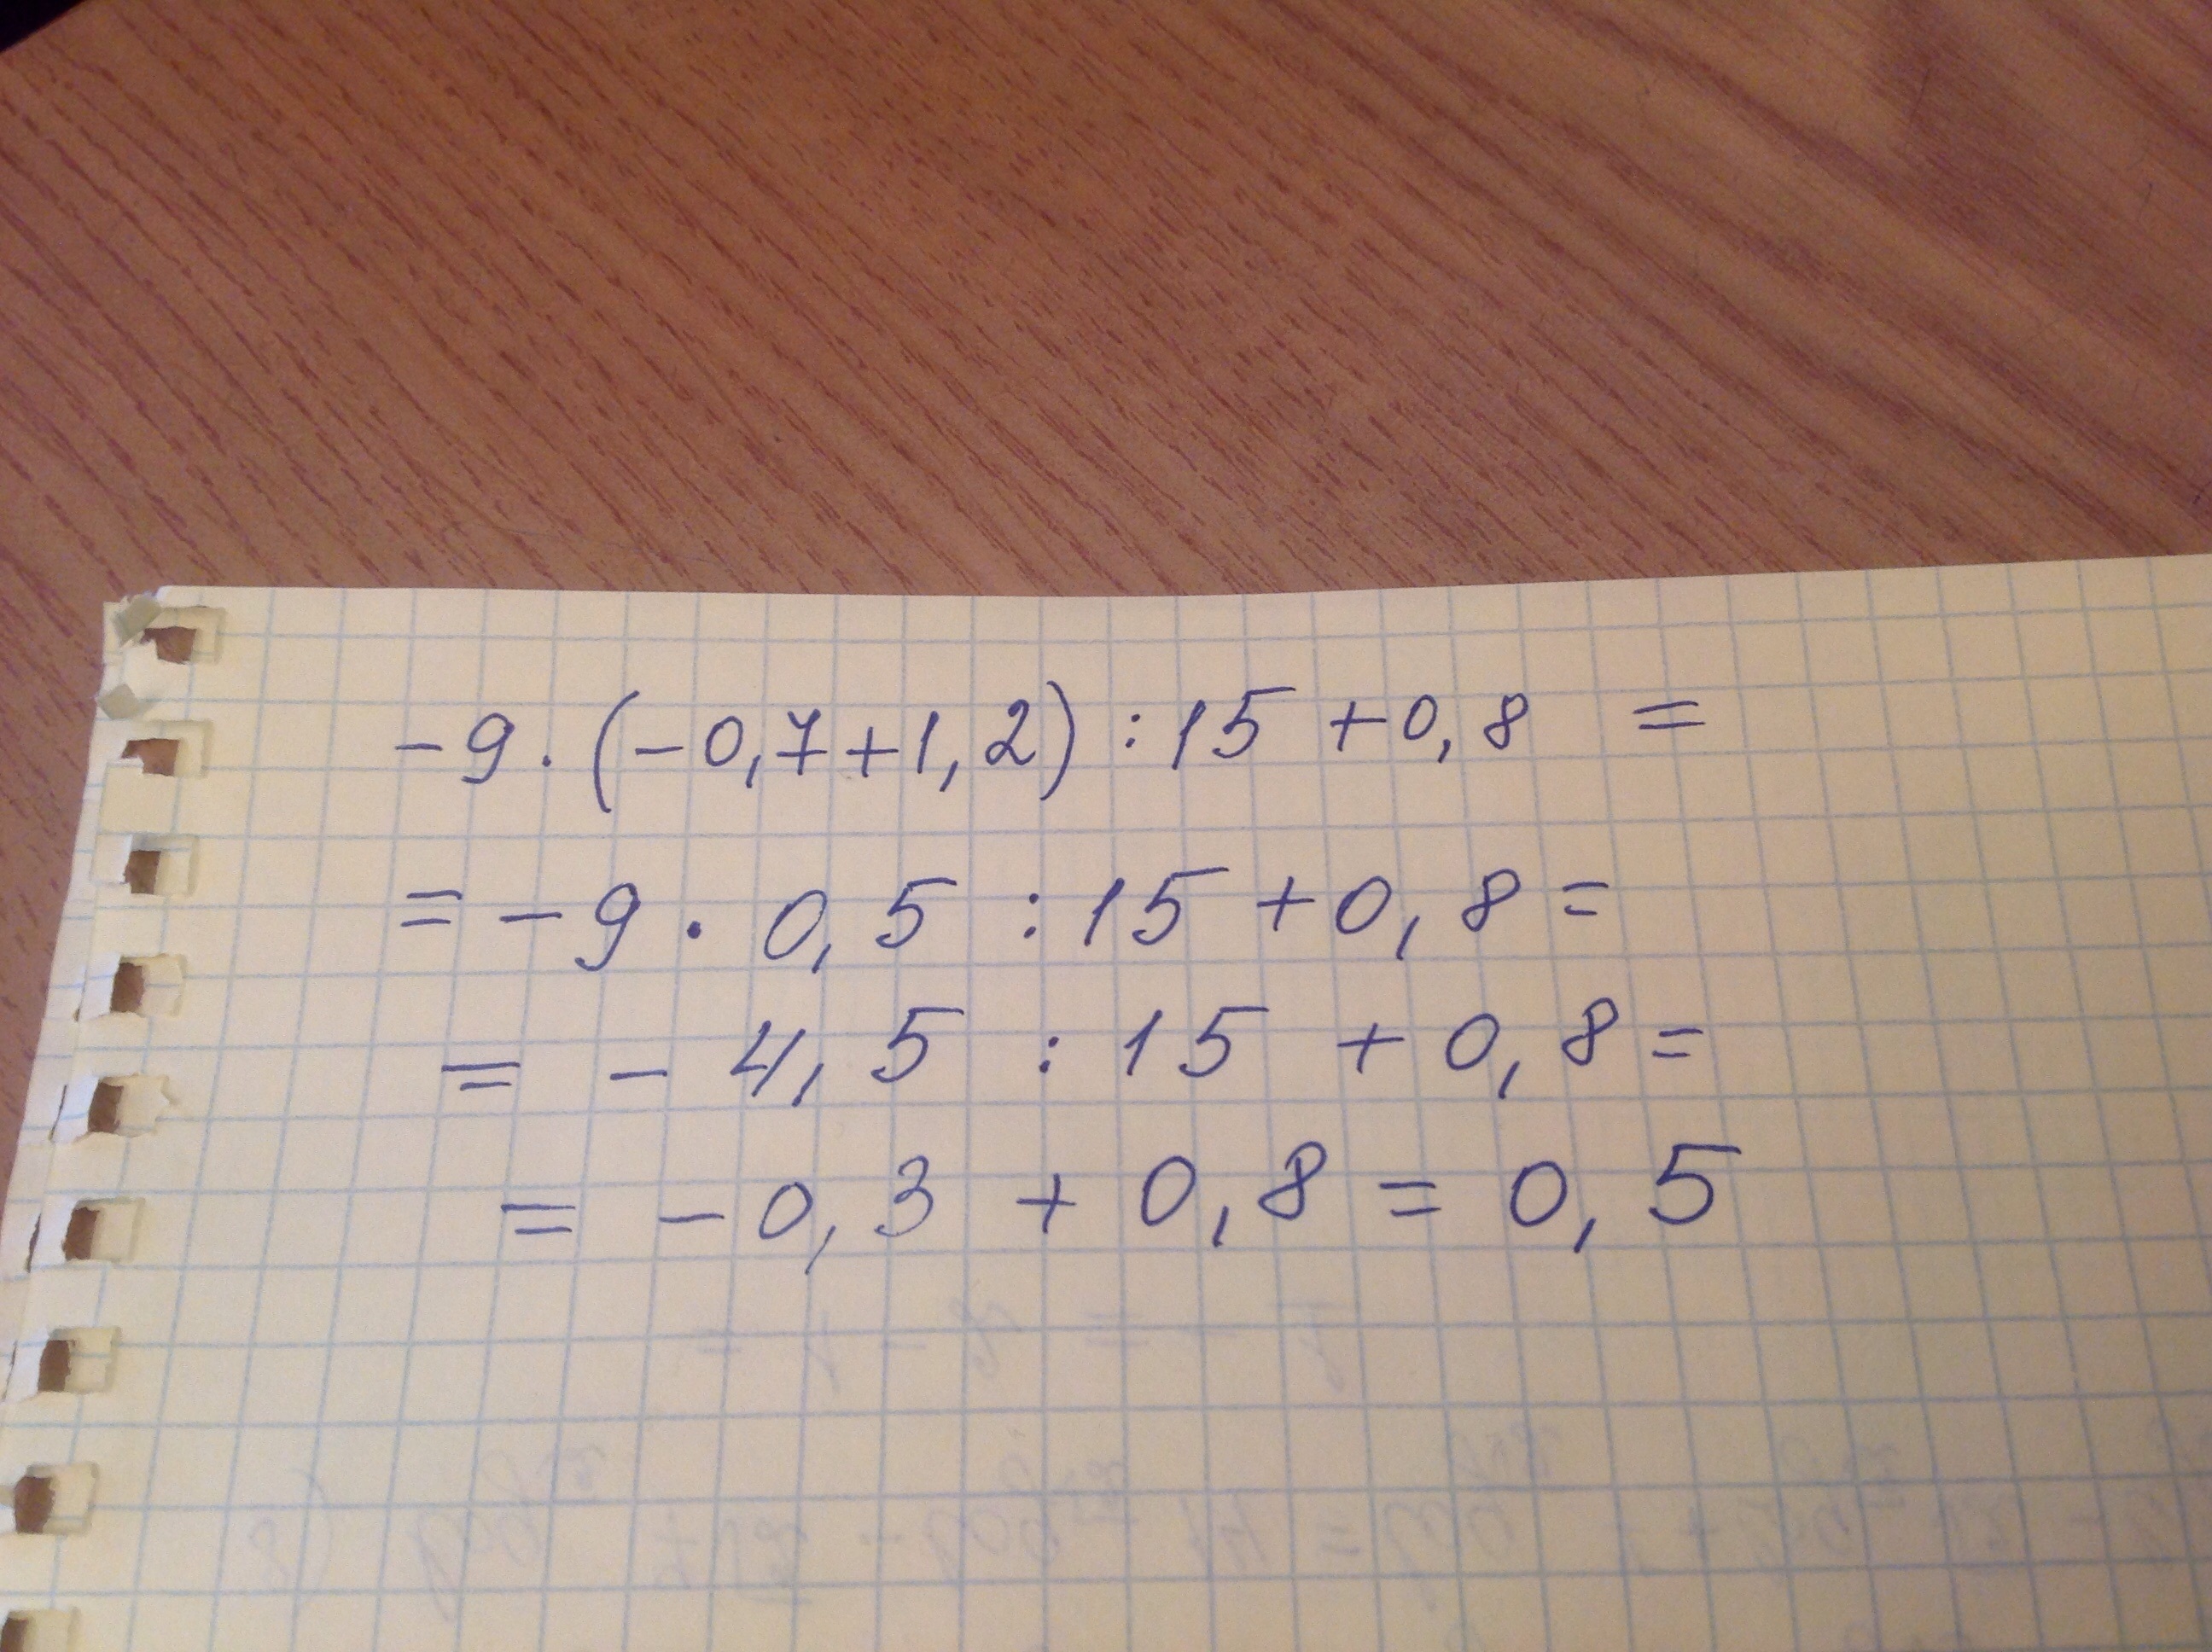 -9·(-0,7+1,2):15+0,8 =
= -9 · 0,5 :15+0,8=
= - 4,5 :15 + 0,8=
= - 0,3 + 0,8 = 0,5